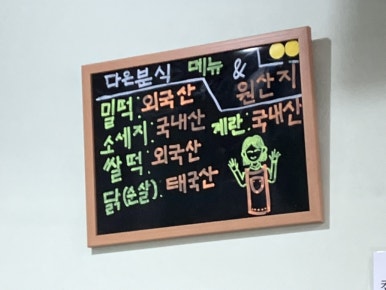 다온분식 메뉴 & 원산지
밀떡:외국산
소세지:국내산 계란:국내산
쌀떡:외국산
닭(순살):태국산